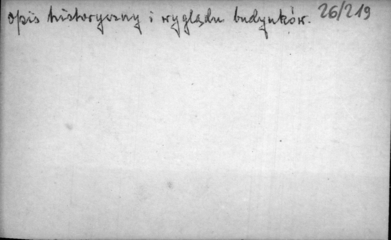 opis historyczny i wyglądu budynków. 26/219